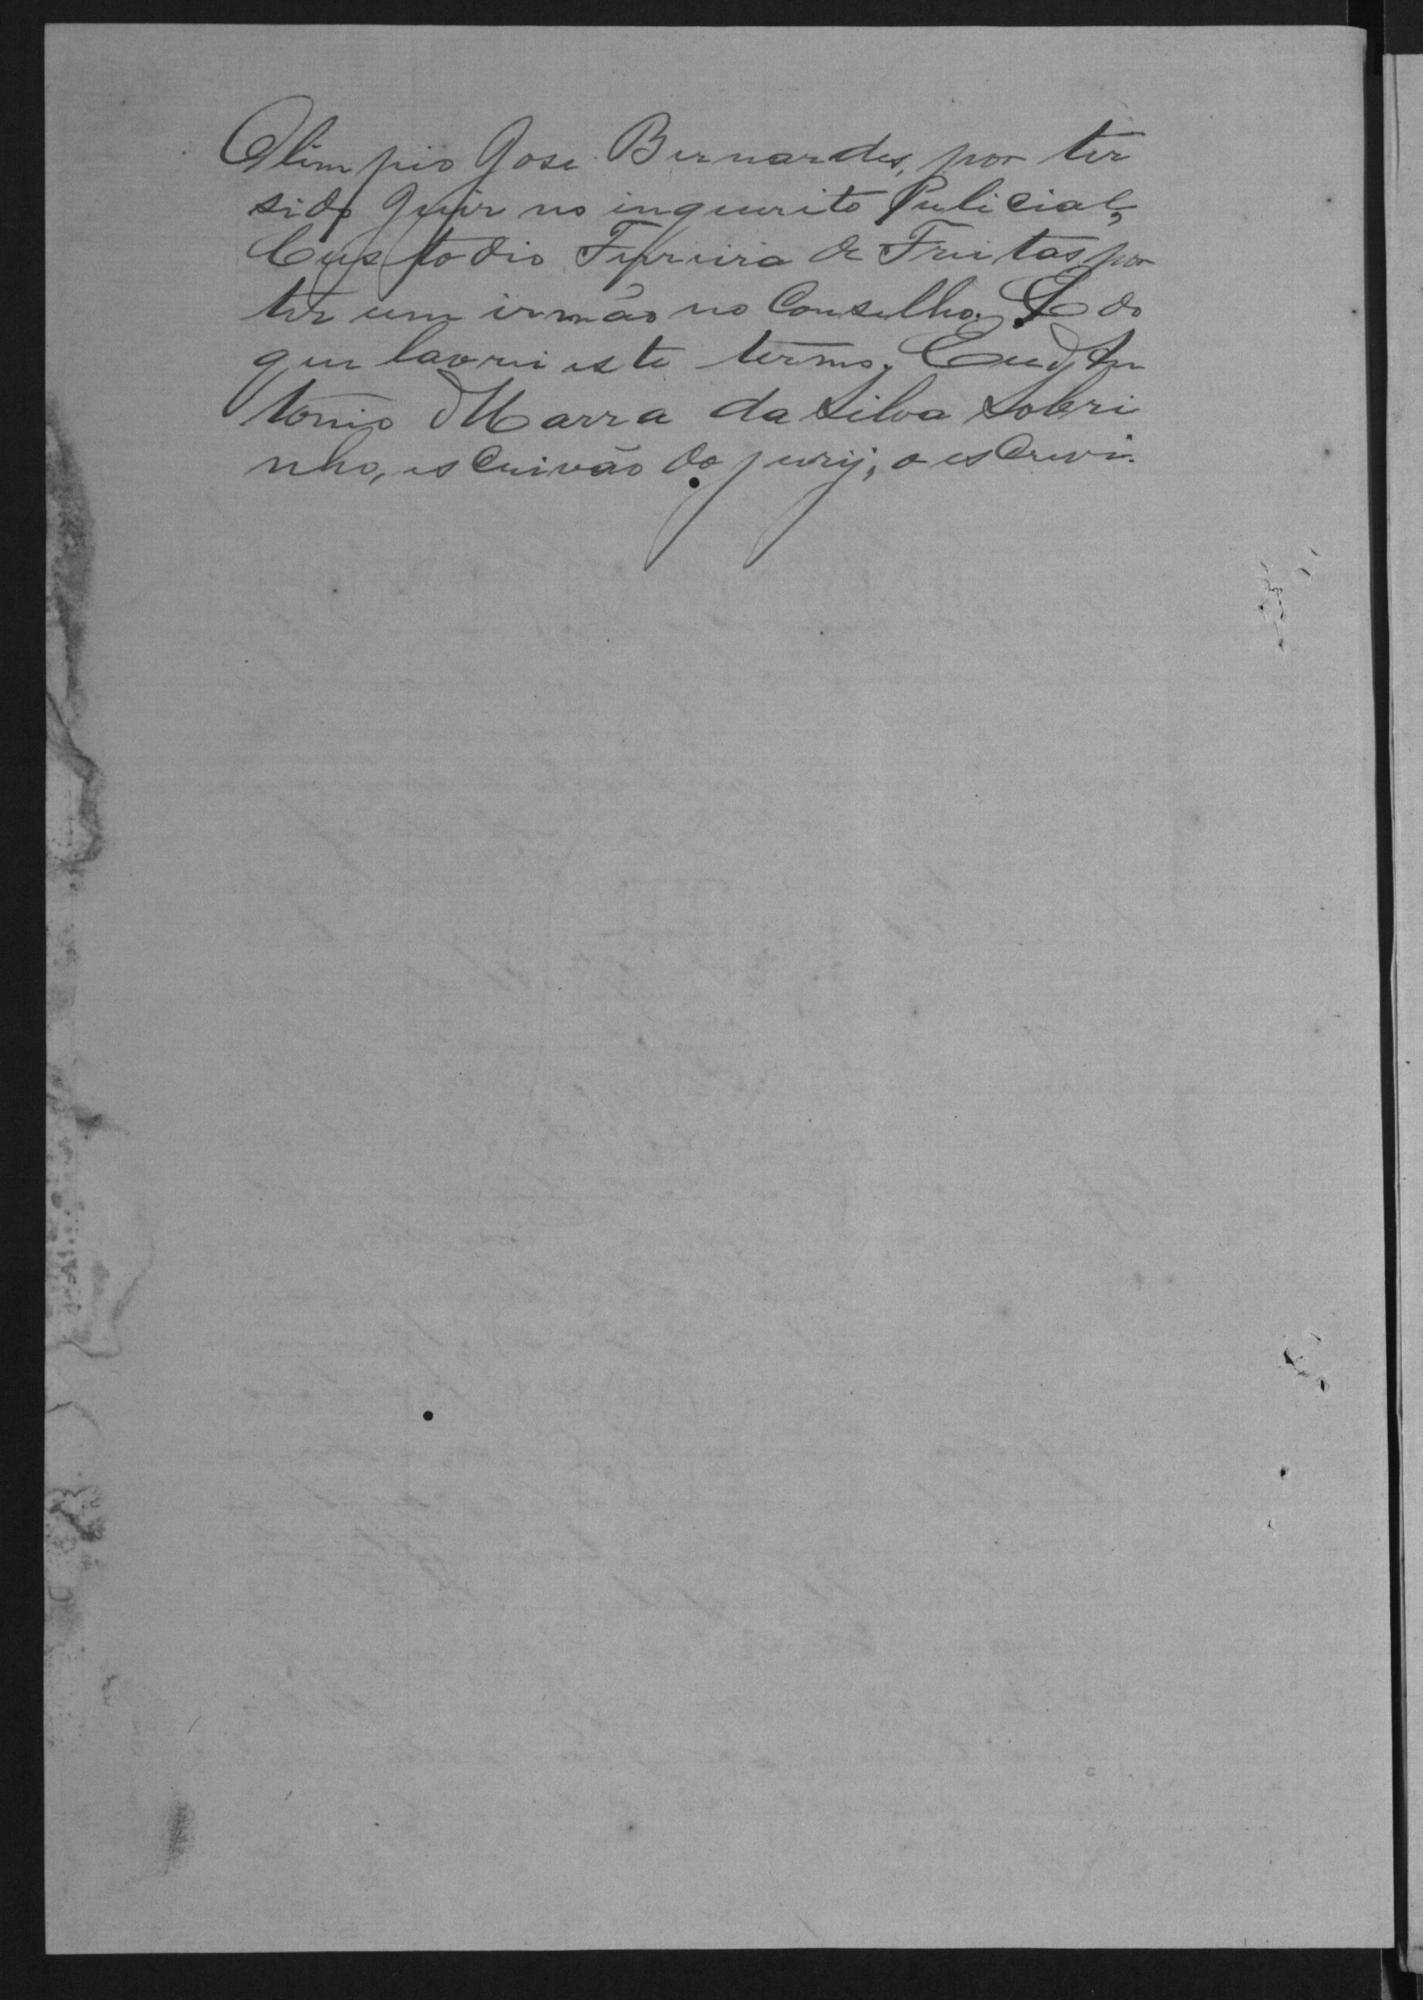 Olimpio Jose Bernardes, por ter
sido Juir no inquerito Pulicial,
Custodio Ferreira de Freitas, por
ter um irmão no Conselho. E do
que lavrei este termo. Eu, An
tonio Marra da Silva Sobri
nho, escrivão do jury, o escrevi.